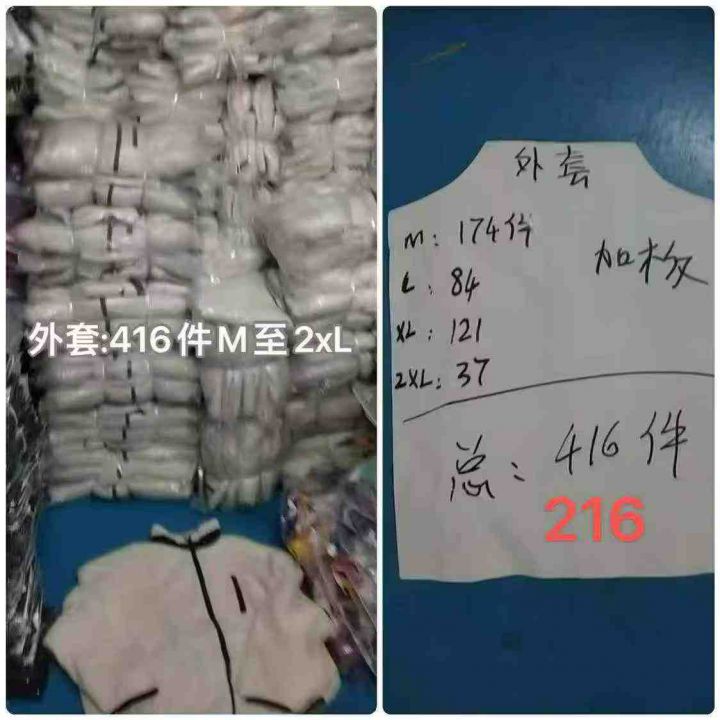 外套:416件M至2xL
外套
M: 174件
加棉
L: 84
XL: 121
2XL: 37
总: 416件
216